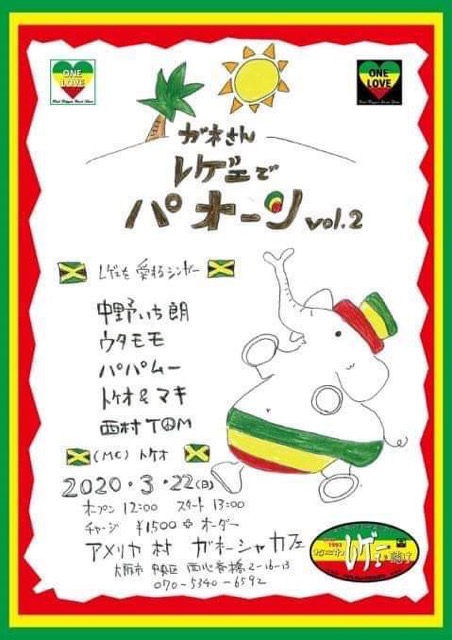 ONE
LOVE
ONE
LOVE
ガネさん
レゲエで
パオーン vol.2
レゲエを愛するシンガー
中野いち朗
ウタモモ
パパムー
トケオ&マキ
西村TOM
(MC) トケオ
2020・3・22(日)
オープン 12:00 スタート 13:00
チャージ ¥1500 オーダー
アメリカ村 ガネーシャカフェ
大阪市 中央区 西心斎橋2-16-13
070-5340-6592
レゲエ